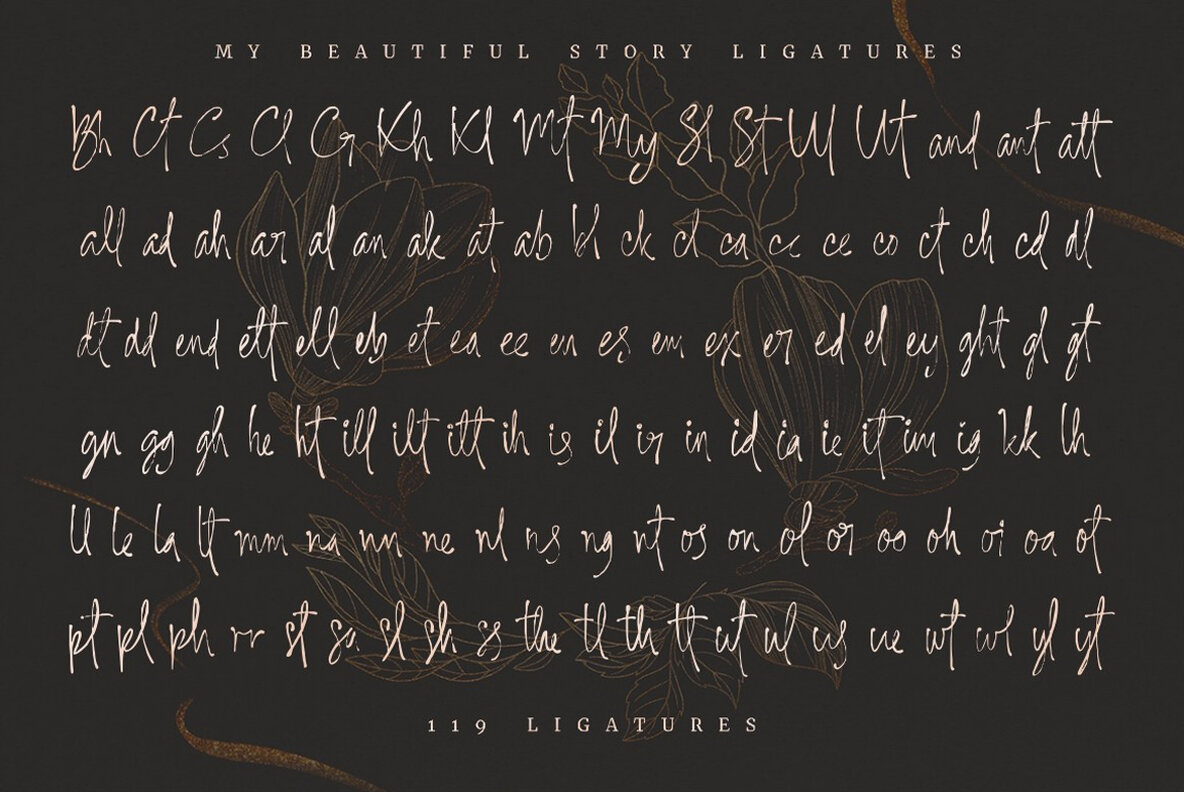 MY BEAUTIFUL STORY LIGATURES
Bh Ct Cs Cl Cr Kh Kl Mt My Sl St Ul Ut and ant att
all ad ah ar al an ak at ab bl ck cl ca cc ce co ct ch cd dl
dt dd end ett ell eb et ea ee en es em ex er ed el ey ght gl gt
gn gg gh he ht ill ilt itt ih is il ir in id ia ie it im ig kk lh
ll le la lt mm na nn ne nl ns ng nt os on ol or oo oh oi oa ot
pt pl ph rr st sa sl sh ss the tl th tt ut ul us ue wt wl yl yt
119 LIGATURES